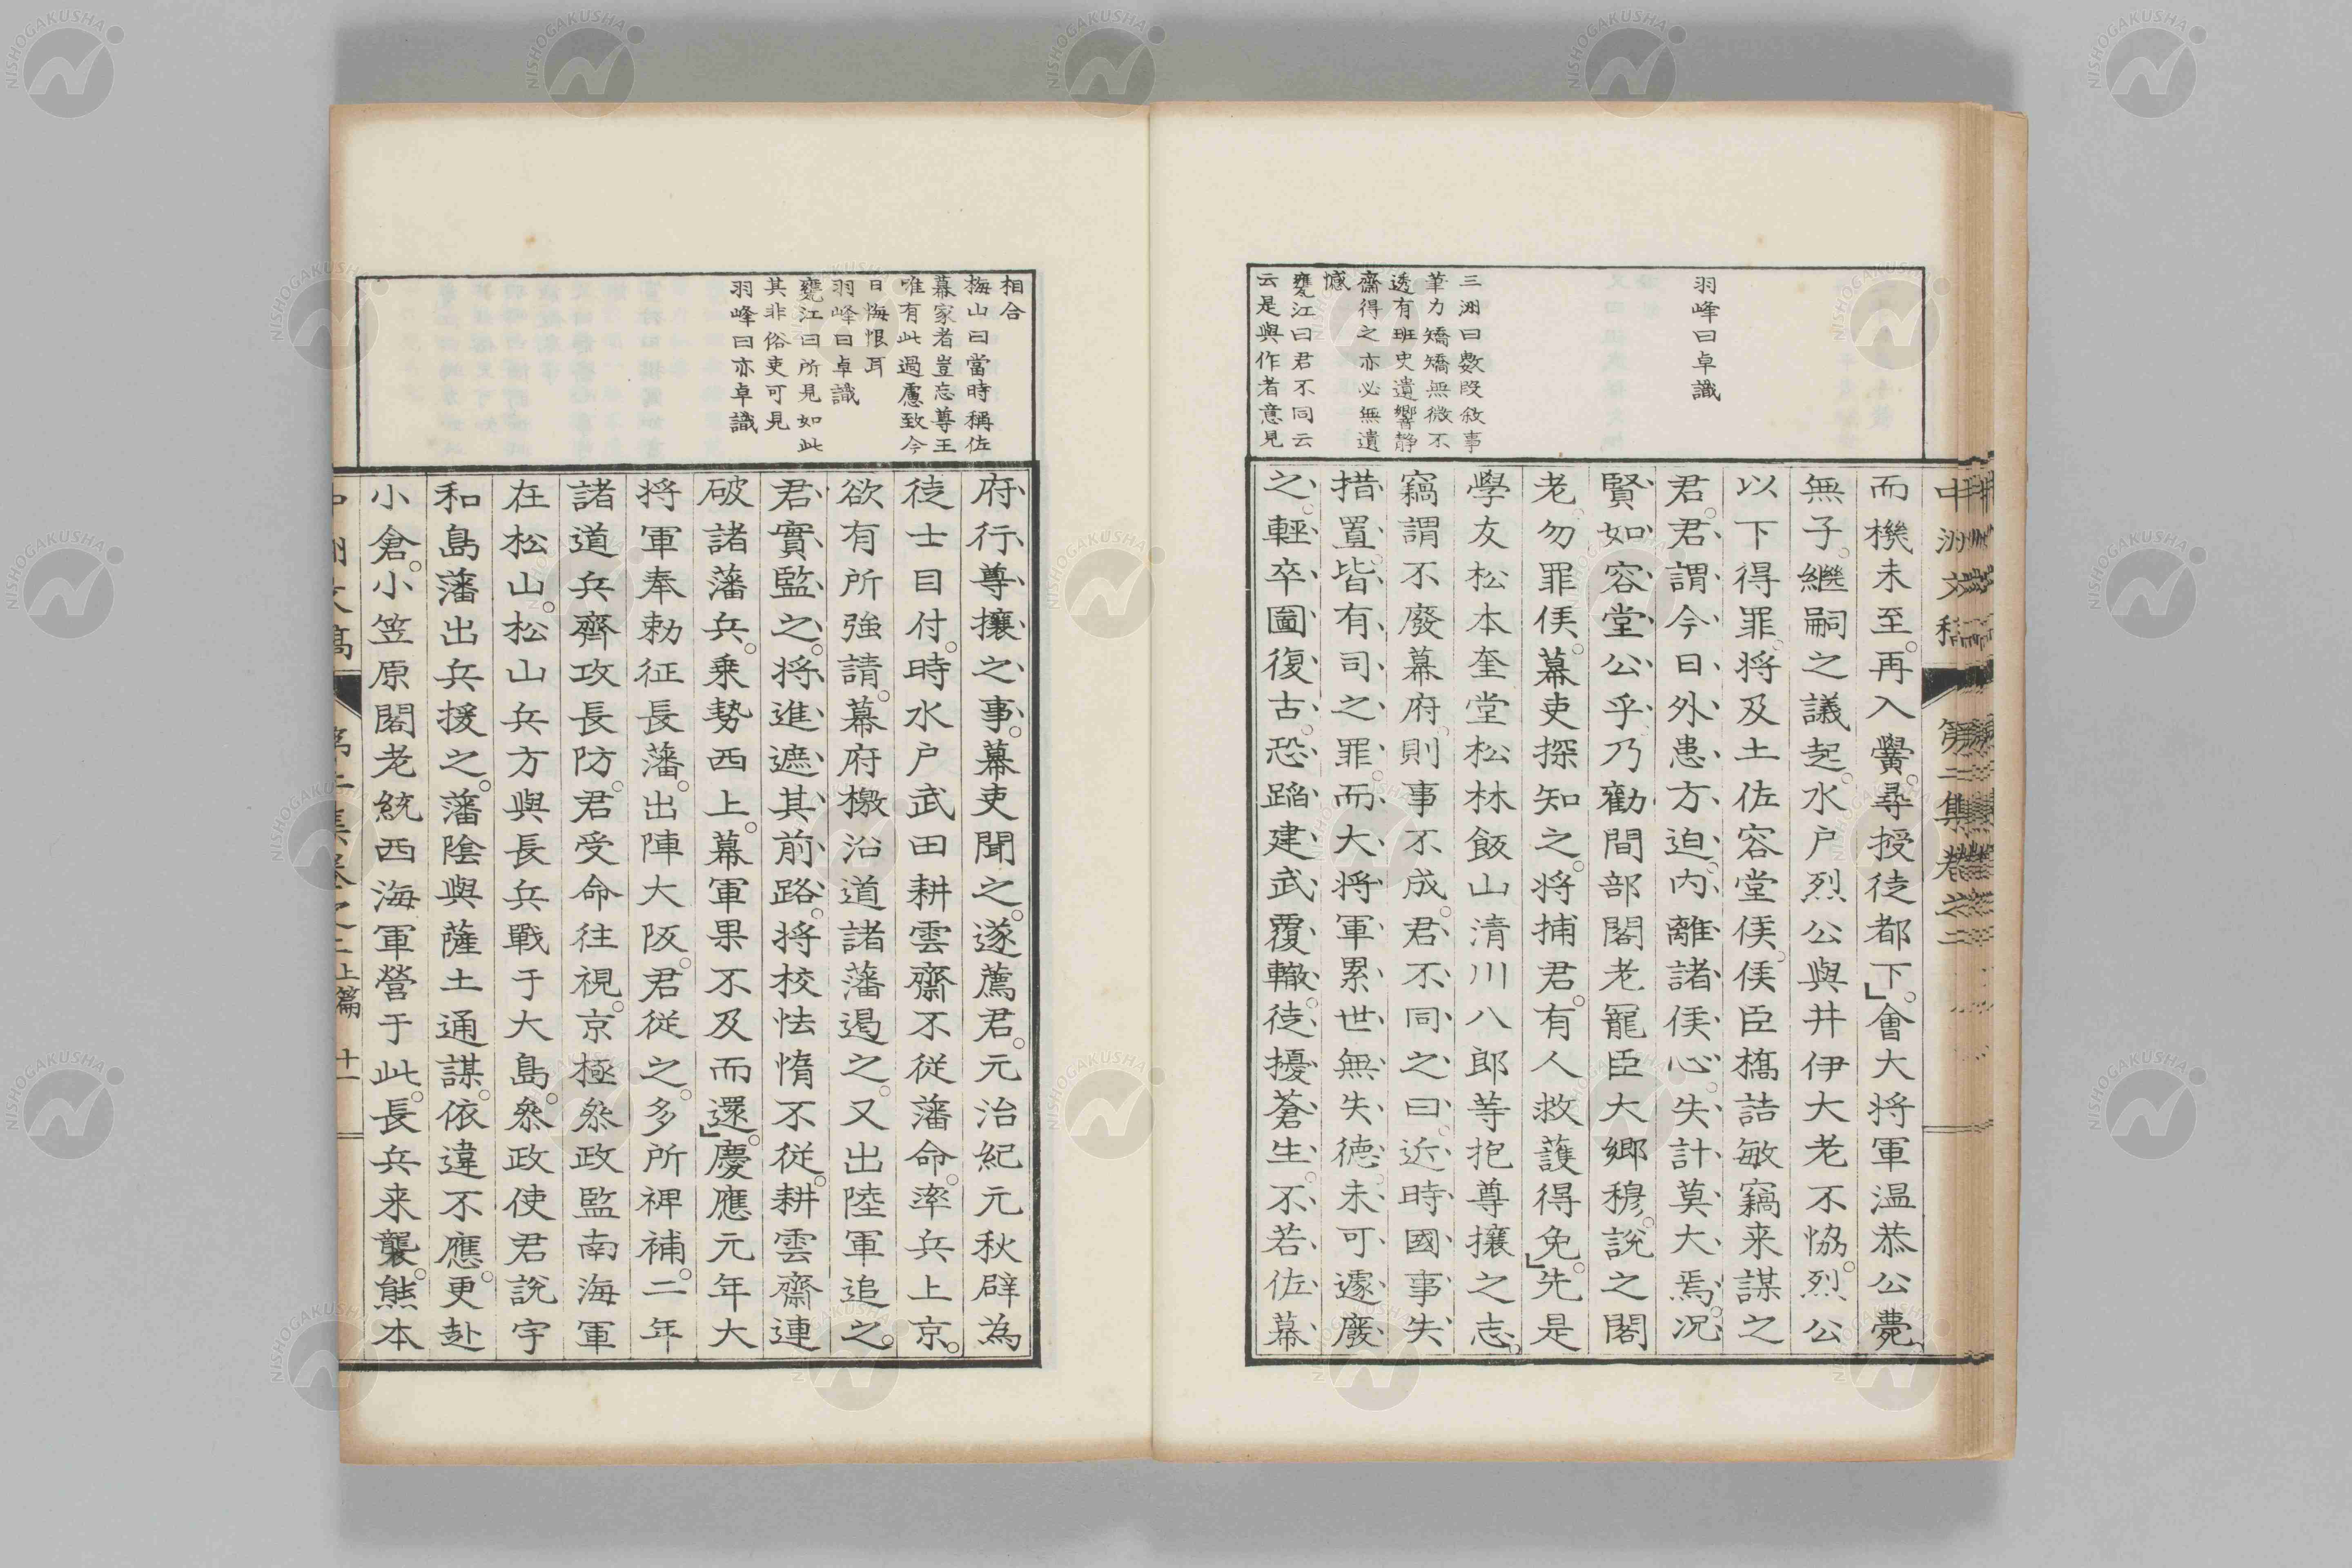 羽峰曰卓識
三洲曰數段敘事
筆力矯矯無微不
透有班史遺響靜
齋得之亦必無遺
憾
甕江曰君不同云
云是與作者意見
中洲文稿 第二集卷之二
而機未至。再入黌。尋授徒都下。」會大将軍温恭公薨、
無子。繼嗣之議起。水戸烈公與井伊大老不恊。烈公
以下得罪。将及土佐容堂侯。侯臣橋詰敏竊来謀之
君。君謂今日外患方迫。内離諸侯心。失計莫大焉。况
賢如容堂公乎。乃勸間部閣老寵臣大鄉穆。說之閣
老。勿罪侯。幕吏探知之。将捕君。有人救護得免。」先是
學友松本奎堂松林飯山清川八郎等抱尊攘之志。
竊謂不廢幕府。則事不成。君不同之曰。近時國事失
措置。皆有司之罪。而大将軍累世無失德。未可遽廢
之。輕卒圖復古。恐蹈建武覆轍。徒擾蒼生。不若佐幕
相合
梅山曰當時稱佐
幕家者豈忘尊王
唯有此過慮致今
日悔恨耳
羽峰曰卓識
甕江曰所見如此
其非俗吏可見
羽峰曰亦卓識
府行尊攘之事。幕吏聞之。遂薦君。元治紀元秋辟為
徒士目付。時水戸武田耕雲齋不從藩命。率兵上京。
欲有所強請。幕府檄沿道諸藩遏之。又出陸軍追之。
君實監之。将進遮其前路。将校怯惰不從。耕雲齋連
破諸藩兵。乗勢西上。幕軍果不及而還。」慶應元年大
将軍奉勅征長藩。出陣大阪。君從之。多所裨補。二年
諸道兵齊攻長防。君受命往視。京極叅政監南海軍
在松山。松山兵方與長兵戰于大島。叅政使君說宇
和島藩出兵援之。藩陰與薩土通謀。依違不應。更赴
小倉。小笠原閣老統西海軍營于此。長兵来襲。熊本